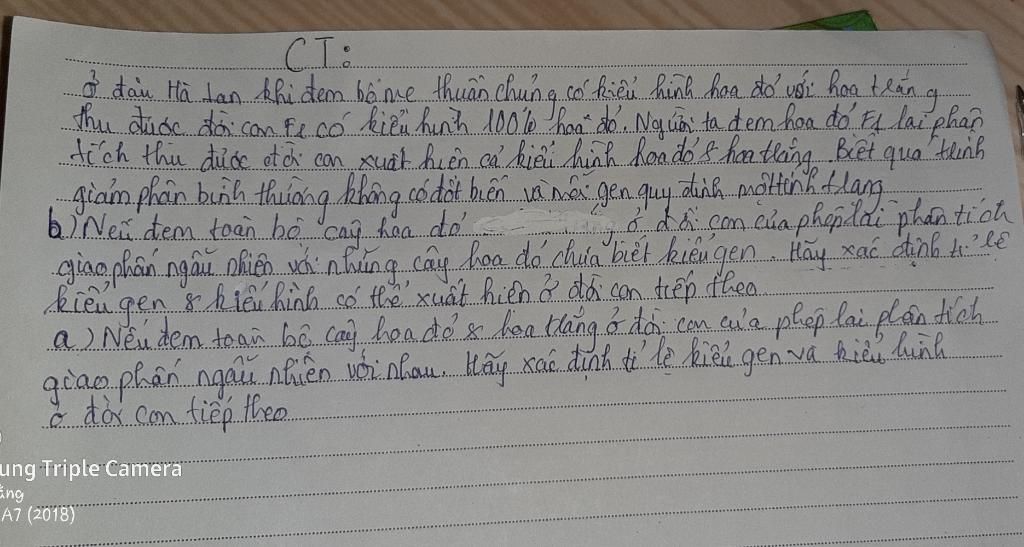 CT:
ở đàu Hà Lan khi đem bố mẹ thuần chủng có kiểu hình hoa đỏ với hoa trắng
thu được đời con F1 có kiểu hình 100% hoa đỏ. Người ta đem hoa đỏ F1 lai phân
tích thu được đời con xuất hiện cả kiểu hình hoa đỏ & hoa trắng. Biết quá trình
giảm phân bình thường không có đột biến và mỗi gen quy định một tính trạng
b) Nếu đem toàn bộ cây hoa đỏ ở đời con của phép lai phân tích
giao phấn ngẫu nhiên với những cây hoa đỏ chưa biết kiểu gen. Hãy xác định tỉ lệ
kiểu gen & kiểu hình có thể xuất hiện ở đời con tiếp theo
a) Nếu đem toàn bộ cây hoa đỏ & hoa trắng ở đời con của phép lai phân tích
giao phấn ngẫu nhiên với nhau. Hãy xác định tỉ lệ kiểu gen và kiểu hình
ở đời con tiếp theo
ung Triple Camera
A7 (2018)